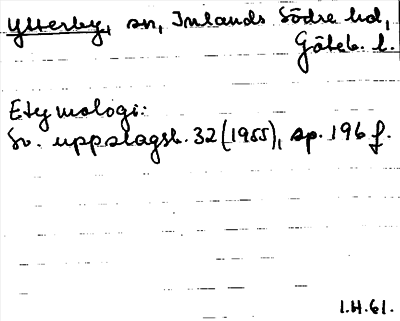 Ytterby, sn, Inlands Södre hd,
Göteb. l.
Etymologi:
Sv. uppslagsb. 32 (1955), sp. 196 f.
1.H.61.